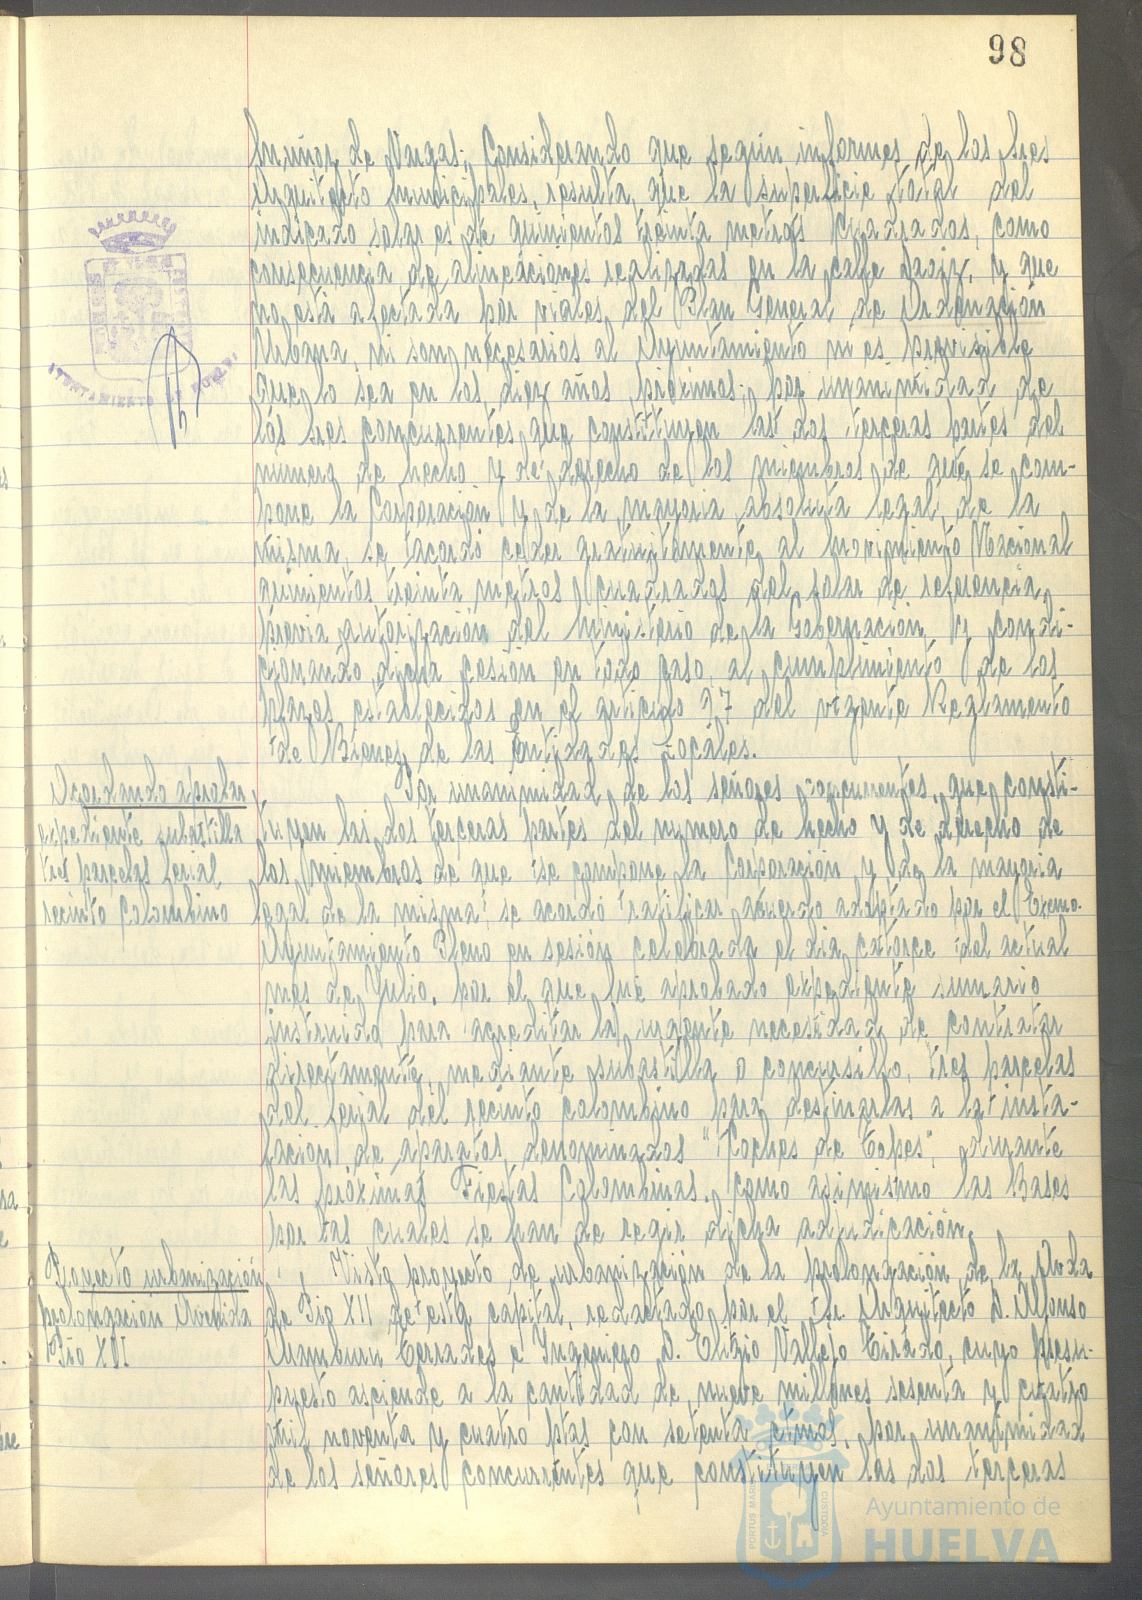 98
Muñoz de Vargas; Considerando que según informes de los Sres
Arquitecto Municipales, resulta, que la superficie total del
indicado solar es de quinientos treinta metros cuadrados, como
consecuencia de alineaciones realizadas en la calle Daoiz, y que
no está afectada por viales del Plan General de Ordenación
Urbana, ni son necesarios al Ayuntamiento ni es previsible
que lo sea en los diez años próximos; por unanimidad de
los Sres concurrentes que constituyen las dos terceras partes del
número de hecho y de derecho de los miembros de que se com-
pone la Corporación y de la mayoria absoluta legal de la
misma, se acordó ceder gratuitamente al Movimiento Nacional
quinientos treinta metros cuadrados del solar de referencia,
previa autorización del Ministerio de la Gobernación y condi-
cionando dicha cesión en todo caso, al cumplimiento de los
plazos establecidos en el articulo 97 del vigente Reglamento
de Bienes de las Entidades Locales.
Acordando aprobar
expediente subastilla
tres parcelas ferial
recinto Colombino
Por unanimidad de los señores concurrentes, que consti-
tuyen las dos terceras partes del número de hecho y de derecho de
los miembros de que se compone la Corporación y de la mayoria
legal de la misma, se acordó ratificar acuerdo adoptado por el Excmo.
Ayuntamiento Pleno en sesión celebrada el dia catorce del actual
mes de Julio, por el que fué aprobado expediente sumario
instruido para acreditar la urgente necesidad de contratar
directamente, mediante subastilla o concursillo, tres parcelas
del ferial del recinto Colombino para destinarlas a la insta-
lacion de aparatos denominados "Coches de Topes", durante
las próximas Fiestas Colombinas, como asimismo las Bases
por las cuales se han de regir dicha adjudicación.
Proyecto urbanización
prolongación Avenida
Pio XII
Visto proyecto de urbanización de la prolongación de la Avda
de Pio XII de esta capital, redactado por el Sr. Arquitecto D. Alfonso
Aramburu Terrades e Ingeniero D. Eligio Vallejo Tirado, cuyo presu-
puesto asciende a la cantidad de nueve millones sesenta y cuatro
mil noventa y cuatro ptas con setenta ctmos, por unanimidad
de los señores concurrentes que constituyen las dos terceras
AYUNTAMIENTO DE HUELVA
PORTUS MARIS
CUSTODIA
Ayuntamiento de
HUELVA